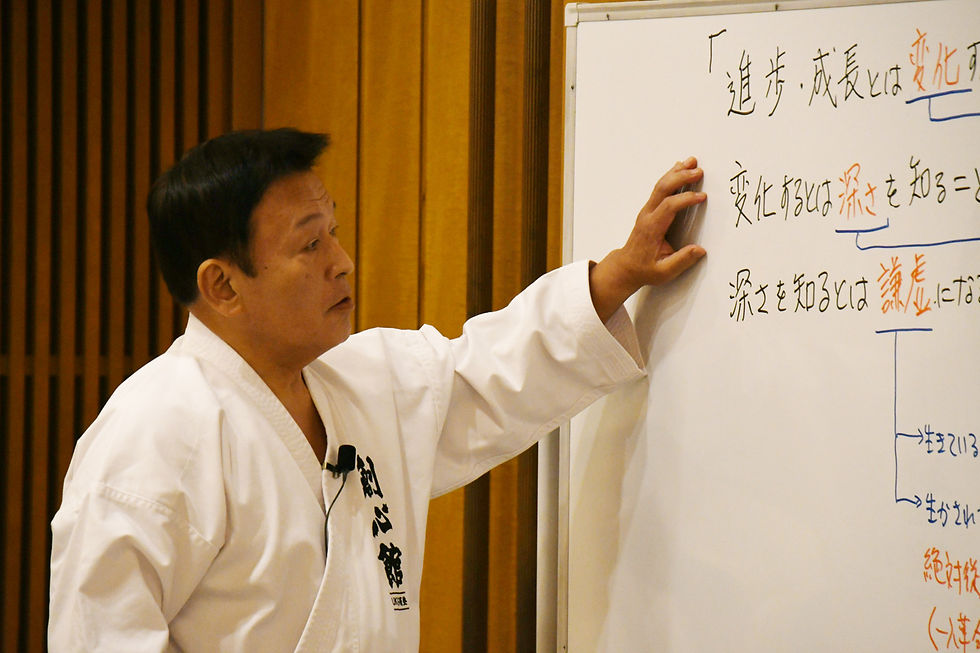 「進歩・成長とは変化す
変化するとは深さを知るこ
深さを知るとは謙虚にな
→生きている
→生かされ
絶対従
(一人革命
創心館